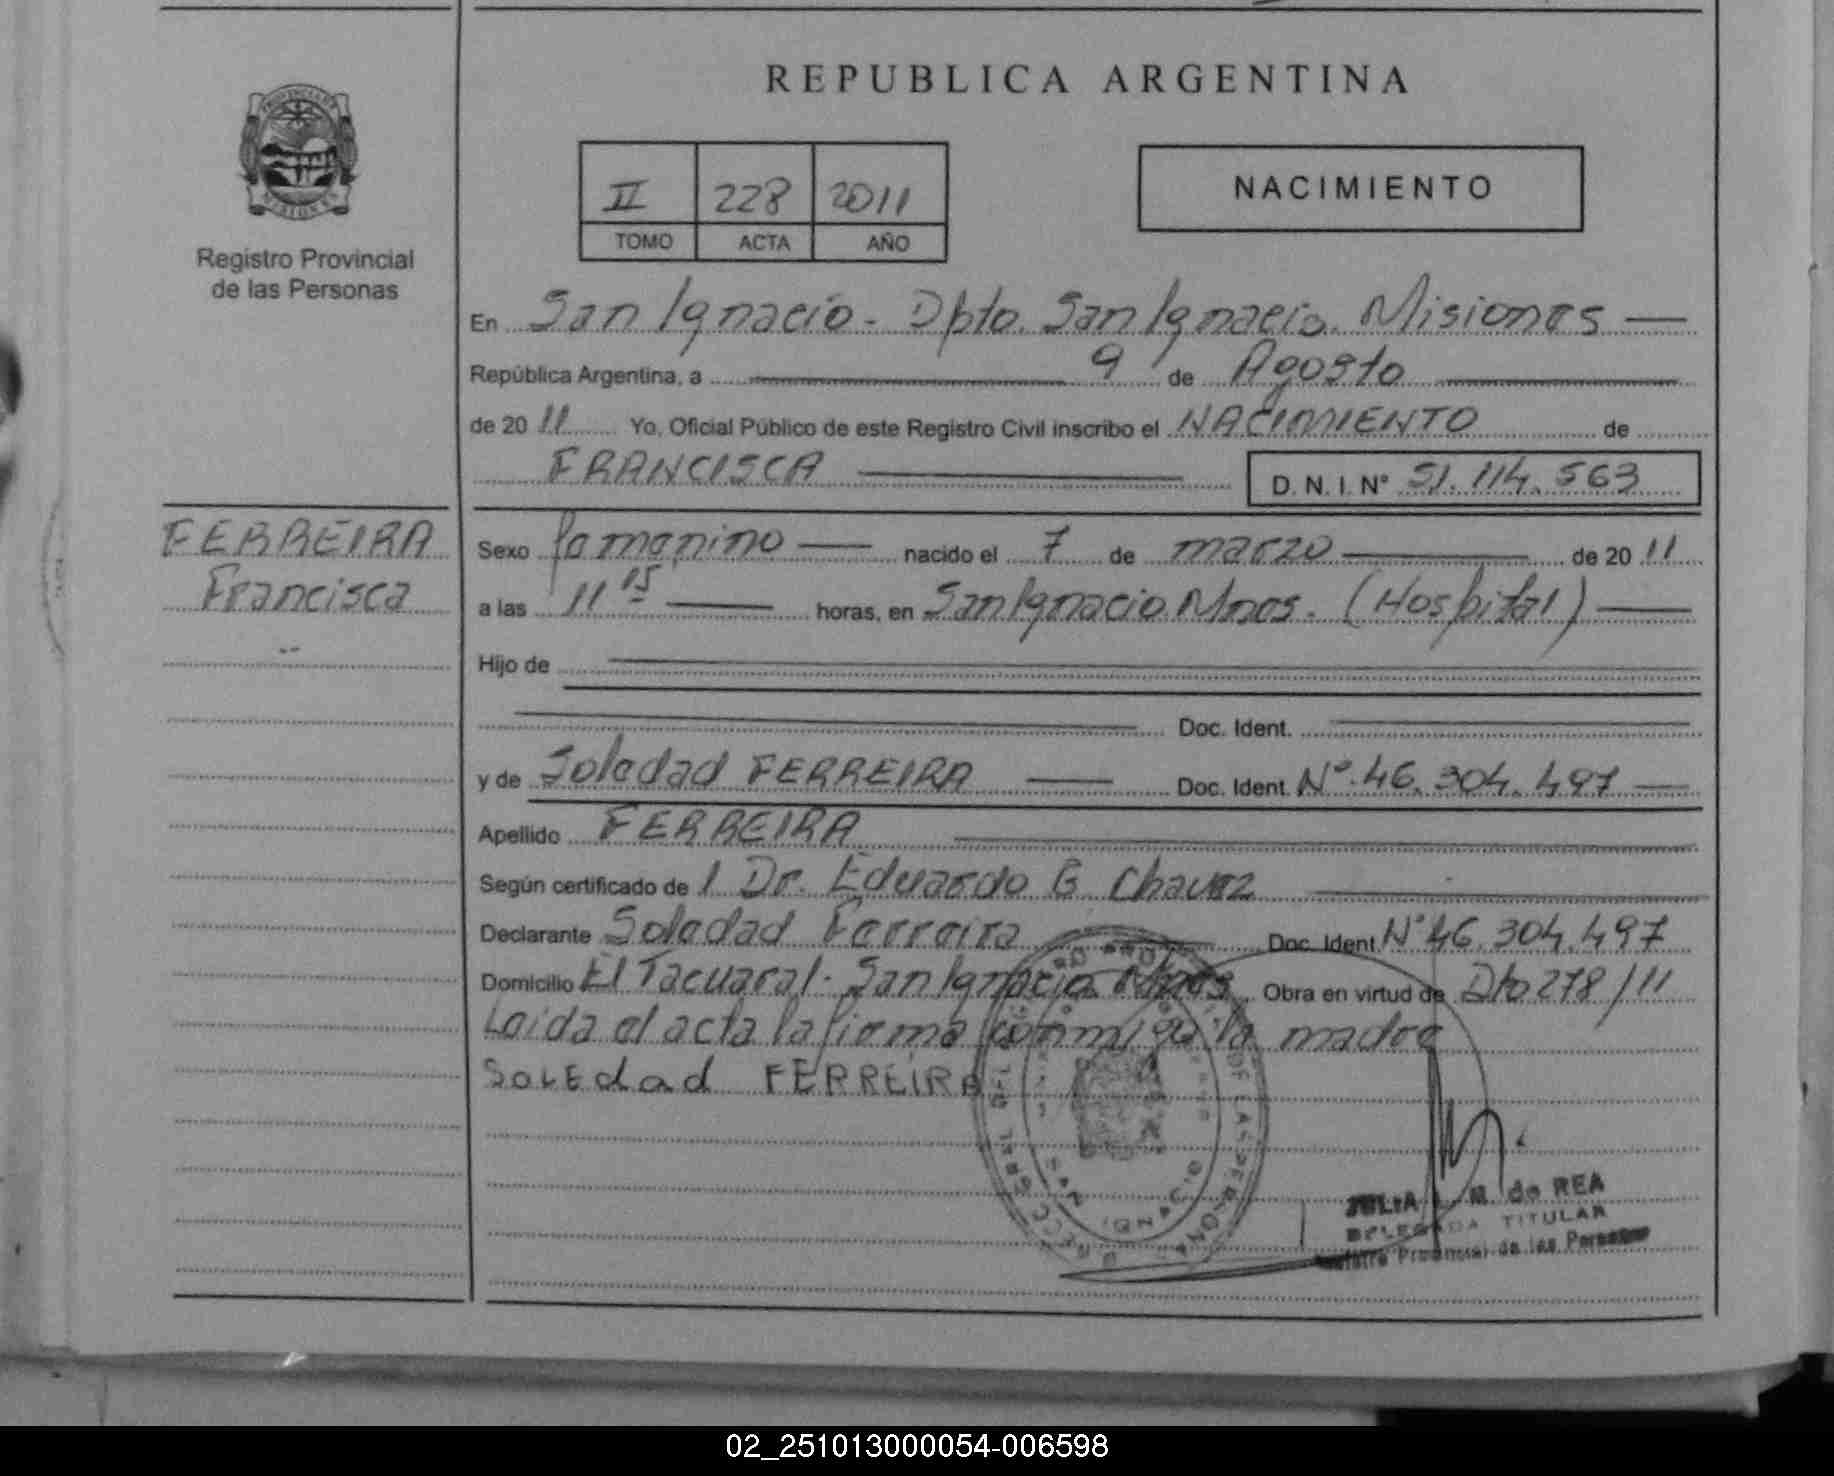 REPUBLICA ARGENTINA
PROVINCIA DE
MISIONES
Registro Provincial
de las Personas
II 228 2011
TOMO ACTA AÑO
NACIMIENTO
En San Ignacio - Dpto. San Ignacio. Misiones
República Argentina, a 9 de Agosto
de 2011 Yo, Oficial Público de este Registro Civil inscribo el NACIMIENTO de
FRANCISCA D. N. I. N° 51.114.563
FERREIRA
Francisca
Sexo femenino nacido el 7 de marzo de 2011
a las 11 15 horas, en San Ignacio Mnes. (Hospital)
Hijo de
Doc. Ident.
y de Soledad FERREIRA Doc. Ident. N°. 46.304.497
Apellido FERREIRA
Según certificado de 1 Dr. Eduardo G Chavez
Declarante Soledad Ferreira Doc. Ident. N° 46.304.497
Domicilio El Tacuaral - San Ignacio Mnes Obra en virtud de Dto 278/11
Leida el acta la firma conmigo la madre
SOLEdad FERREIRA
SAN IGNACIO
JULIA M. de REA
DELEGADA TITULAR
Provincial de las Personas
02_251013000054-006598